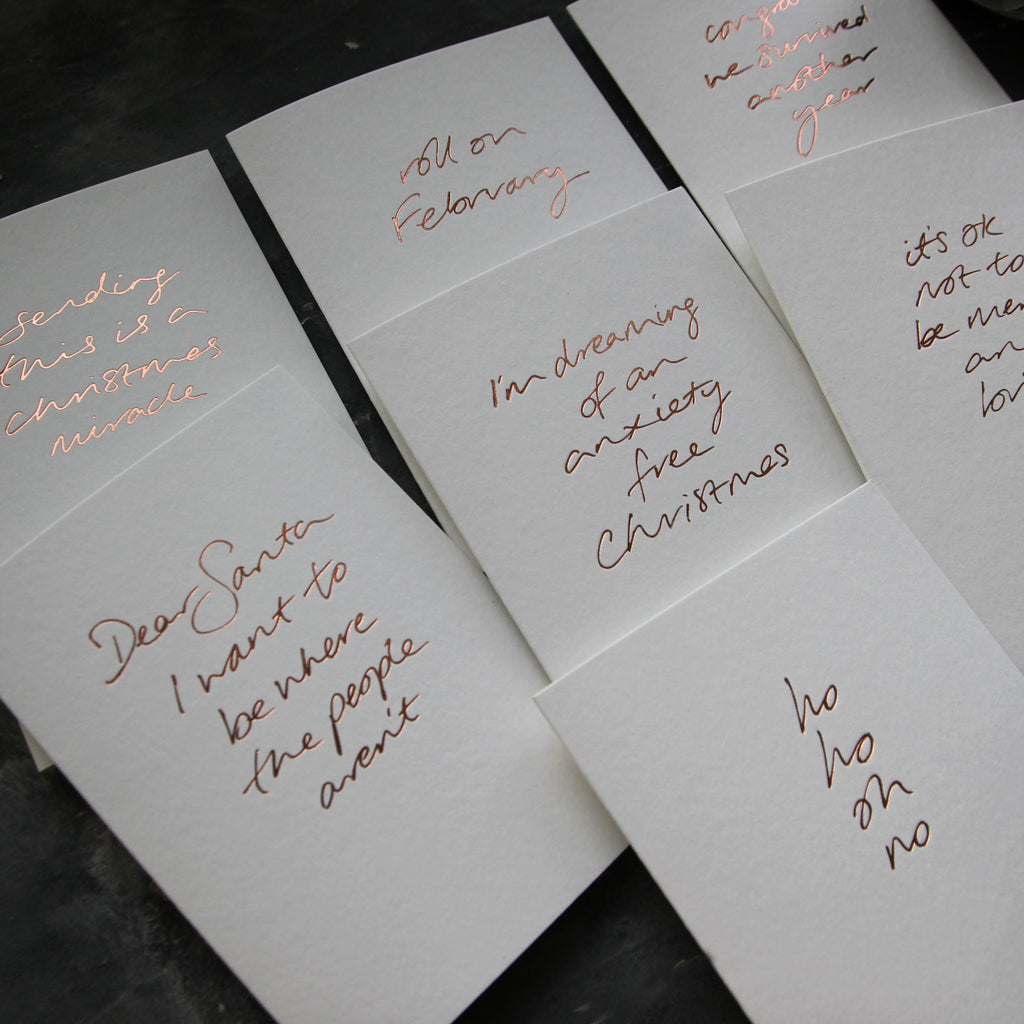 we survived
another
year
roll on
February
it's ok
not to
be
sending
this is a
christmas
miracle
I'm dreaming
of an
anxiety
free
Christmas
Dear Santa
I want to
be where
the people
aren't
ho
ho
oh
no